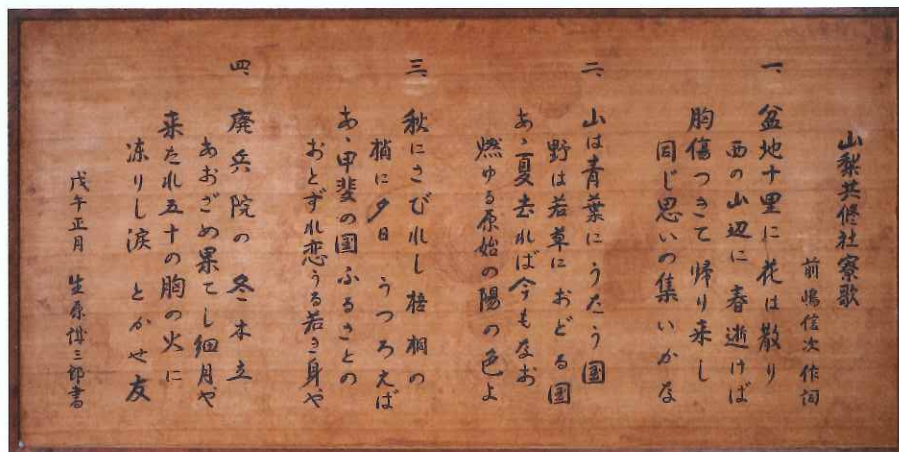 山梨共修社寮歌
前嶋信次作詞
一、盆地十里に 花は散り
西の山辺に 春逝けば
胸傷つきて 帰り来し
同じ思いの集いかな
二、山は青葉に うたう国
野は若草に おどる国
あゝ夏去れば今もなお
燃ゆる原始の陽の色よ
三、秋にさびれし 梧桐の
梢に夕日 うつろえば
あゝ甲斐の国 ふるさとの
おとずれ恋うる若き身や
四、廃兵院の 冬木立
あおざめ果てし細月や
来たれ五十の胸の火に
凍りし涙 とかせ友
戊午正月 生原 三郎書